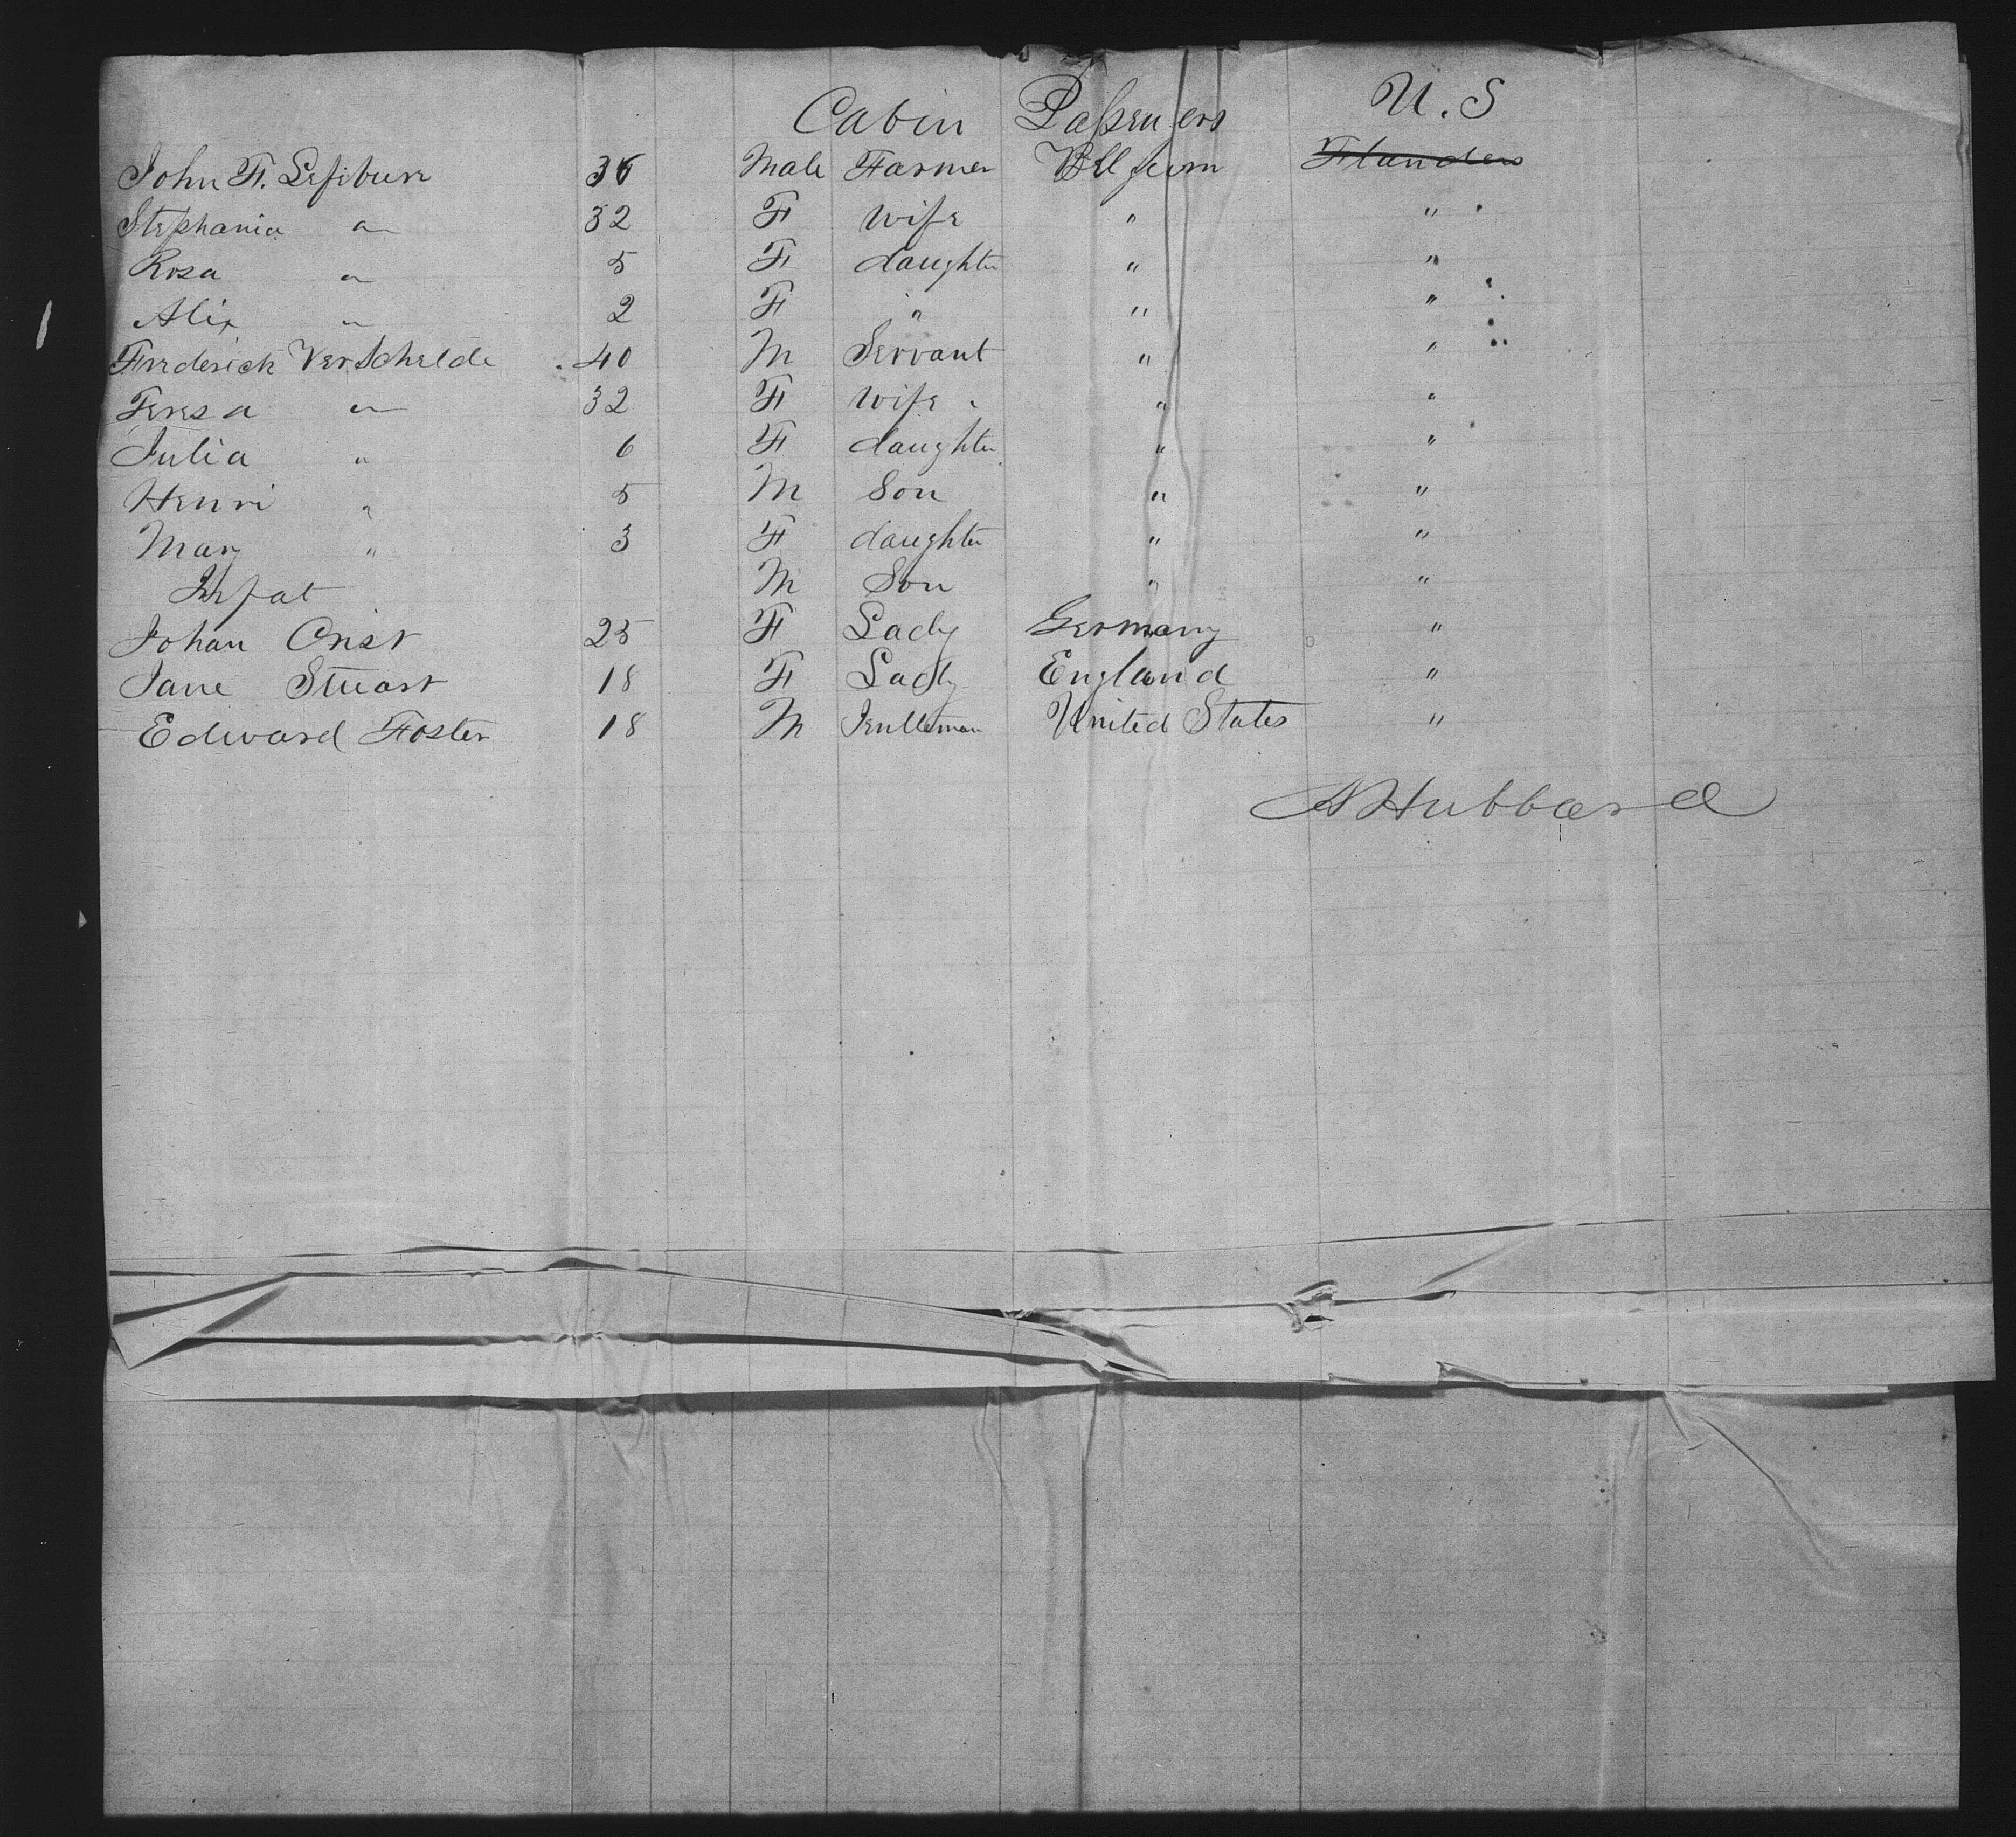 Cabin Passengers U.S
John F. Lefebure 36 Male Farmer Belgium Flanders
Stephania " 32 F Wife " "
Rosa " 5 F daughter " "
Alix " 2 F " " "
Frederick Verschelde 40 M Servant " "
Teresa " 32 F Wife " "
Julia " 6 F daughter " "
Henri " 5 M Son " "
Mary " 3 F daughter " "
Infat M Son " "
Johan Crist 25 F Lady Germany "
Jane Stuart 18 F Lady England "
Edward Foster 18 M Jentleman United States "
A Hubbard